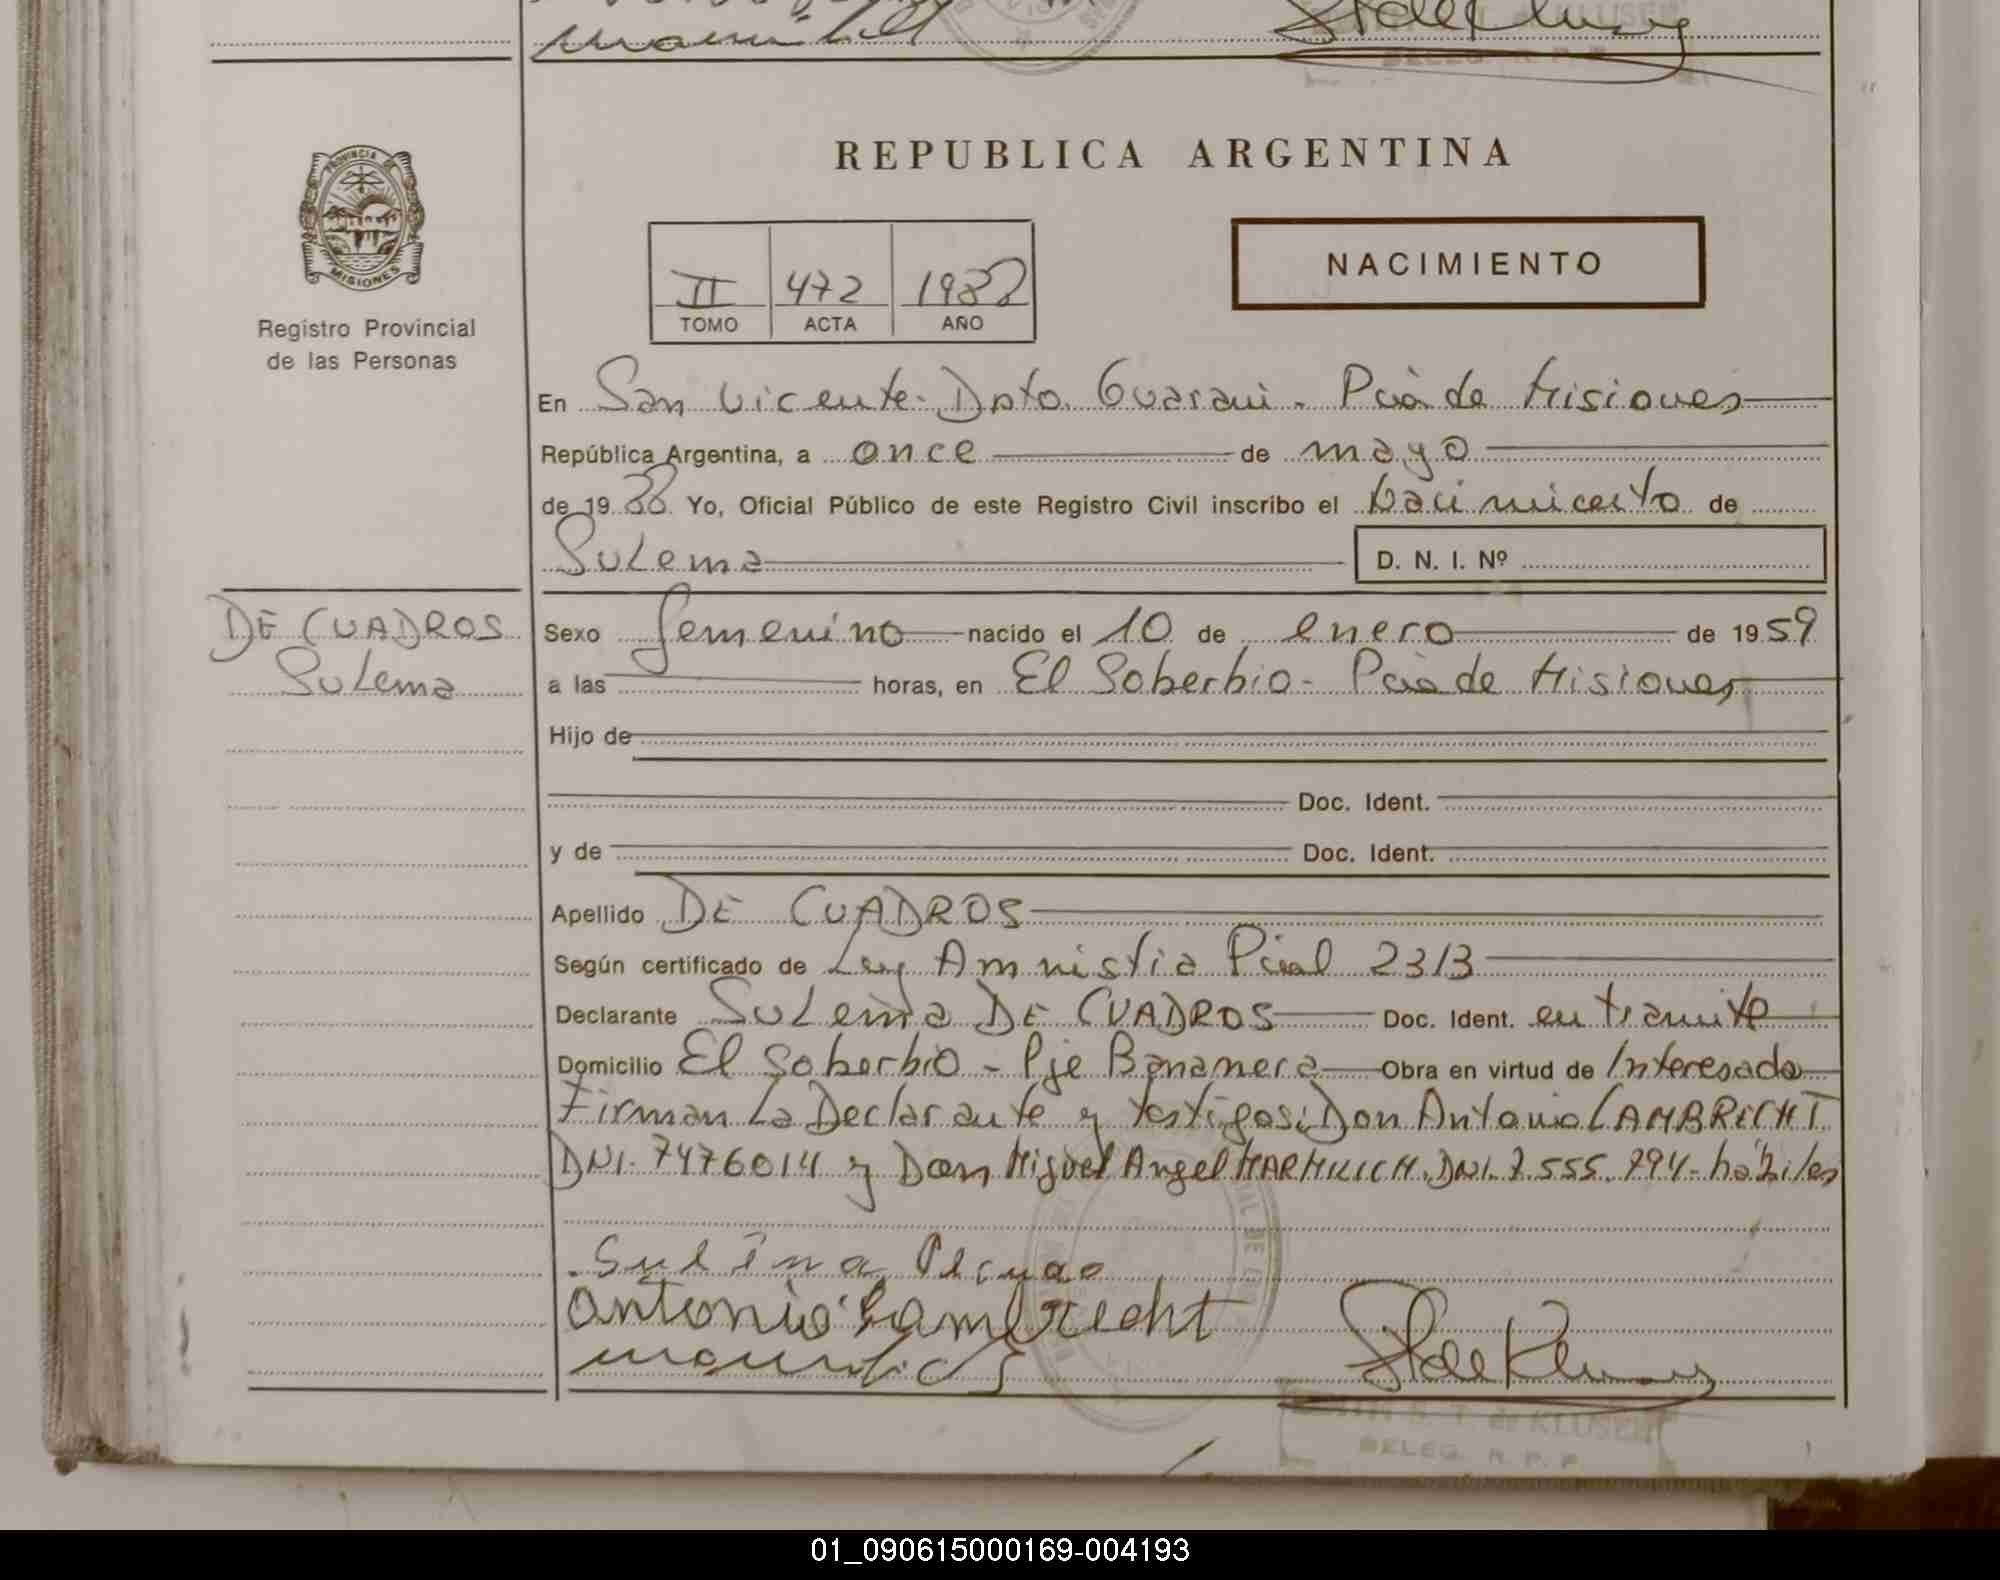 de KLUSER
DELEG. R. P. P.
PROVINCIA DE
MISIONES
Registro Provincial
de las Personas
REPUBLICA ARGENTINA
NACIMIENTO
II 472 1988
TOMO ACTA AÑO
En San Vicente - Dpto. Guarani - Pcia de Misiones
República Argentina, a once de mayo
de 1988 Yo, Oficial Público de este Registro Civil inscribo el Nacimiento de
Sulema D. N. I. Nº
DE CUADROS
Sulema
Sexo femenino nacido el 10 de enero de 1959
a las horas, en El Soberbio - Pcia de Misiones
Hijo de
Doc. Ident.
y de Doc. Ident.
Apellido DE CUADROS
Según certificado de Ley Amnistia Pcial 2313
Declarante Sulema DE CUADROS Doc. Ident. en tramite
Domicilio El Soberbio - Pje Bananera Obra en virtud de Interesada
Firman La Declarante y testigos: Don Antonio LAMBRECHT
DNI. 7476014 y Don Miguel Angel DNI. 7.555.794 - hábiles
Antonio Lambrecht
S. T. de KLUSER
DELEG. R. P. P.
01_090615000169-004193